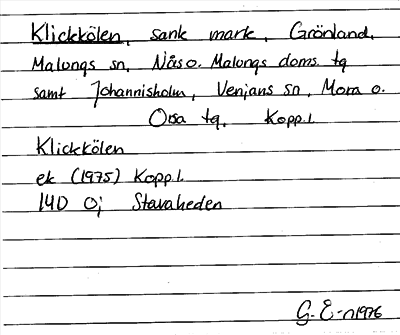 Klickkölen, sank mark, Grönland,
Malungs sn, Nås o. Malungs doms. tg
samt Johannisholm, Venjans sn, Mora o.
Orsa tg. Kopp.l.
Klickkölen
ek (1975) Kopp.l.
14D 0j Stavaheden
G. E-n 1976